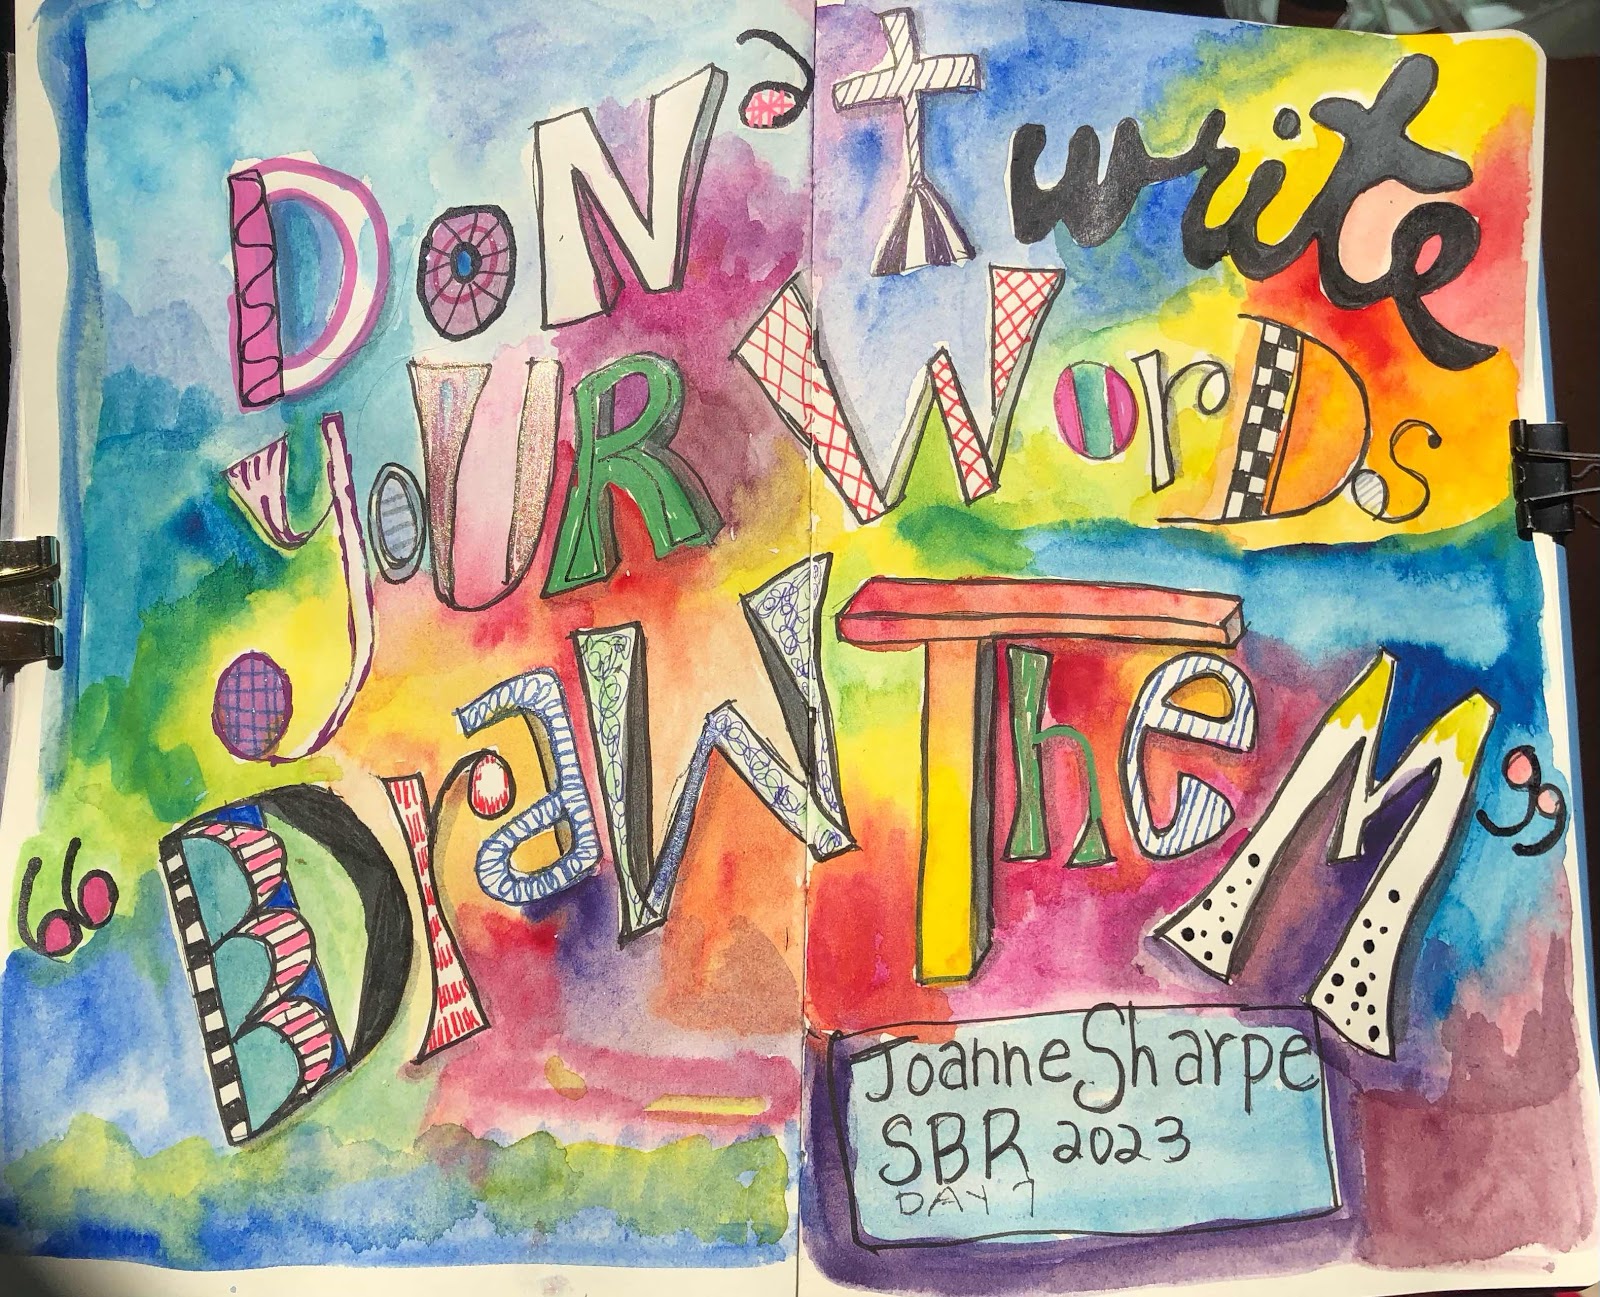 Don't write
your Words
“Draw Them”
Joanne Sharpe
SBR 2023
DAY 7